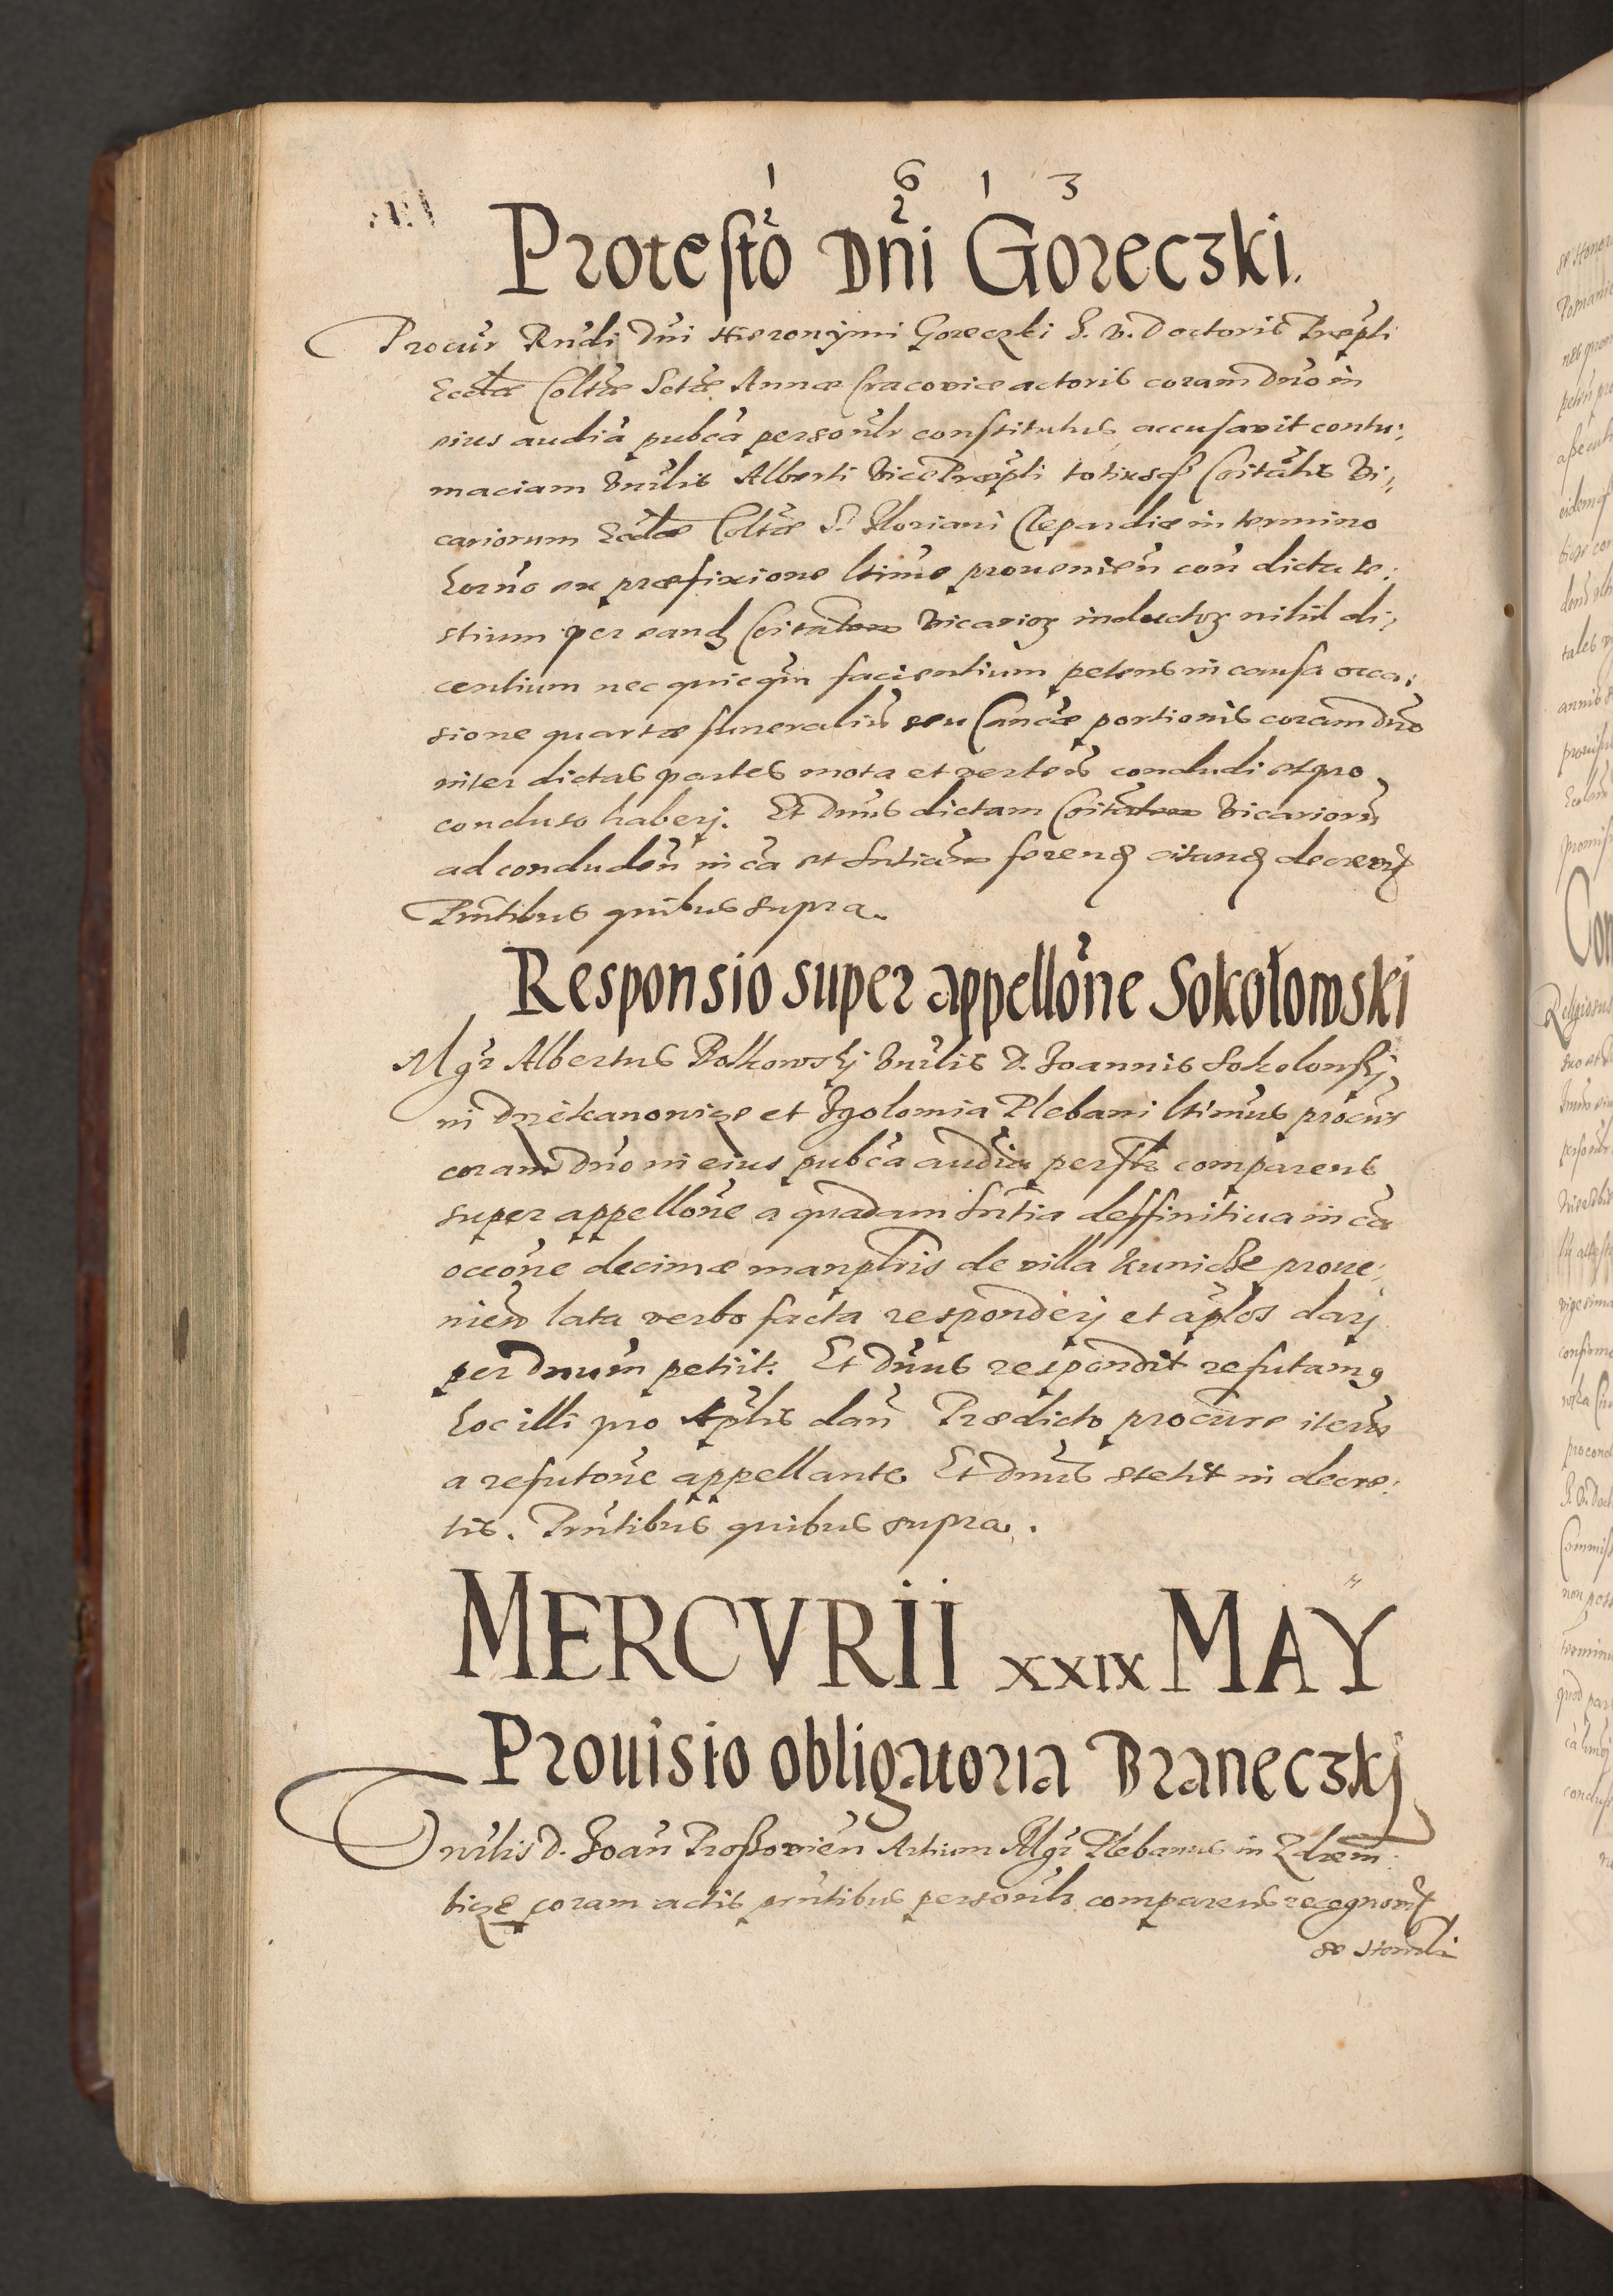 1 6 1 3
Protesto Dni Goreczki.
Procur Rndi Dni Hieronymi Goreczki I. V. Doctoris Præpti
Ecclæ Coltæ Sctæ Annæ Cracoviæ actoris coram Dno in
eius audia pubca personlr constitutus accusavit contu:
maciam Vnrlis Alberti Vice Præpti totiusq Coitatis Vi:
cariorum Ecclæ Coltæ S. Floriani Clepardiæ in termino
horno ex præfixione ltime prouenien con dicta te:
stium per eand Coitatem Vicarior inductor nihil di:
centium nec quicqm facientium petens in causa occa:
sione quartæ funeraliu seu Cancæ portionis coram Dno
inter dictas partes mota et verten concludi et pro
concluso haberj. Et Dnus dictam Coitatem Vicarioru
ad concluden in ca et sntiam ferend citand decrevit
Pntibus quibus supra.
Responsio super appellone Sokołowski
Mgr Albertus Bolkowskj Vnrlis D. Joannis Sokolowskj
in Dziekanowice et Igolomia Plebani ltimus procur
coram Dno in eius pubca audia persltr comparens
super appellone a quadam sntia deffinitiua in ca
occone decimæ manplris de villa Kunicze proue:
nien lata verbo facta responderj et aplos darj
per Dnum petiit. Et Dnus respondit refutam9
hoc illi pro Aplis dan Prædicto procure iteru
a refutone appellante Et Dnus stetit in decre:
tis. Pntibus quibus supra.
MERCVRII XXIX MAY
Prouisio obligatoria Braneczkj
Vnrlis D. Joan Proszovien Artium Mgr Plebanus in Zdrem:
bice coram actis pntibus personlr comparens recognovit
se Honorli